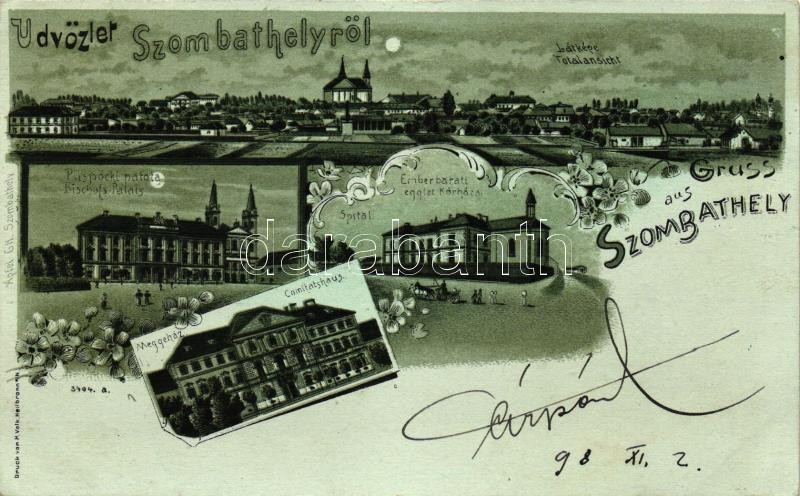 Üdvözlet Szombathelyről
Látképe
Totalansicht
Püspöki palota
Bischofs-Palais
Emberbaráti
egylet Kórháza
Spital
Gruss
aus
SZOMBATHELY
Comitatshaus
Megyeház
3404. a.
Druck von H. Volk, Heilbronn
Szombathely
darabanth.com
Árpád
98 XI. 2.